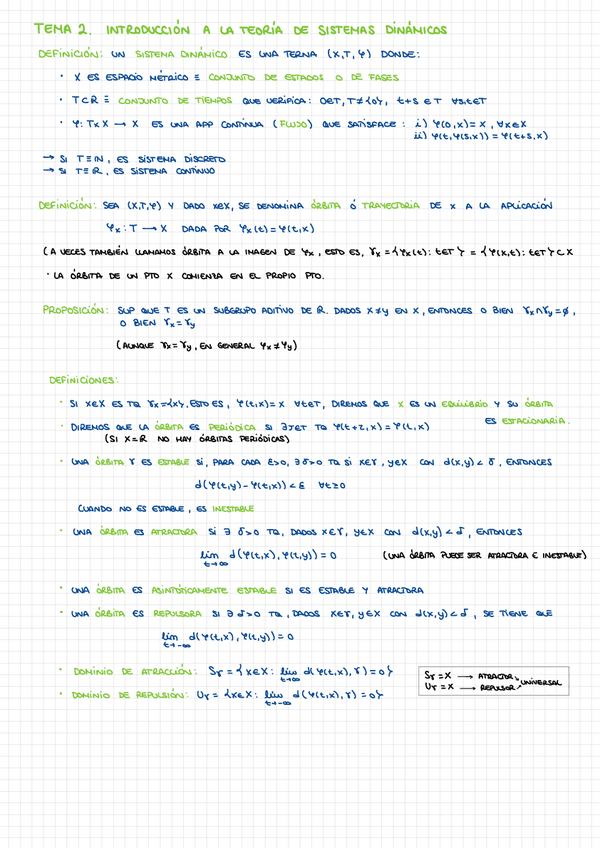 TEMA 2. INTRODUCCIÓN A LA TEORÍA DE SISTEMAS DINÁMICOS
DEFINICIÓN: UN SISTEMA DINÁMICO ES UNA TERNA (X,T,φ) DONDE:
· X ES ESPACIO MÉTRICO ≡ CONJUNTO DE ESTADOS O DE FASES
· T⊂ℝ ≡ CONJUNTO DE TIEMPOS QUE VERIFICA: 0∈T, T≠{0}, t+s∈T ∀s,t∈T
· φ: T×X → X ES UNA APP CONTINUA (FLUJO) QUE SATISFACE: i) φ(0,x)=x, ∀x∈X
ii) φ(t,φ(s,x)) = φ(t+s,x)
→ SI T≡ℕ, ES SISTEMA DISCRETO
→ SI T≡ℝ, ES SISTEMA CONTINUO
DEFINICIÓN: SEA (X,T,φ) Y DADO x∈X, SE DENOMINA ÓRBITA Ó TRAYECTORIA DE X A LA APLICACIÓN
φx: T → X DADA POR φx(t)=φ(t,x)
(A VECES TAMBIÉN LLAMAMOS ÓRBITA A LA IMAGEN DE φx, ESTO ES, γx={φx(t): t∈T} = {φ(x,t): t∈T}⊂X
· LA ÓRBITA DE UN PTO X COMIENZA EN EL PROPIO PTO.
PROPOSICIÓN: SUP QUE T ES UN SUBGRUPO ADITIVO DE ℝ. DADOS X≠y EN X, ENTONCES O BIEN γx∩γy=∅,
O BIEN γx=γy
(AUNQUE γx=γy, EN GENERAL φx≠φy)
DEFINICIONES:
· SI x∈X ES TQ γx={x}, ESTO ES, φ(t,x)=x ∀t∈T, DIREMOS QUE X ES UN EQUILIBRIO Y SU ÓRBITA
ES ESTACIONARIA.
· DIREMOS QUE LA ÓRBITA ES PERIÓDICA SI ∃τ∈T TQ φ(t+τ,x)=φ(t,x)
(SI X=ℝ NO HAY ÓRBITAS PERIÓDICAS)
· UNA ÓRBITA γ ES ESTABLE SI, PARA CADA ε>0, ∃δ>0 TQ SI x∈γ, y∈X CON d(x,y)<δ, ENTONCES
d(φ(t,y)-φ(t,x))<ε ∀t≥0
CUANDO NO ES ESTABLE, ES INESTABLE
· UNA ÓRBITA ES ATRACTORA SI ∃ δ>0 TQ, DADOS x∈γ, y∈X CON d(x,y)<δ, ENTONCES
lim t→∞ d(φ(t,x),φ(t,y))=0 (UNA ÓRBITA PUEDE SER ATRACTORA E INESTABLE)
· UNA ÓRBITA ES ASINTÓTICAMENTE ESTABLE SI ES ESTABLE Y ATRACTORA
· UNA ÓRBITA ES REPULSORA SI ∃ δ>0 TQ, DADOS x∈γ, y∈X CON d(x,y)<δ, SE TIENE QUE
lim t→-∞ d(φ(t,x),φ(t,y))=0
· DOMINIO DE ATRACCIÓN: Sγ={x∈X: lim t→∞ d(φ(t,x),γ)=0}
· DOMINIO DE REPULSIÓN: Uγ={x∈X: lim t→-∞ d(φ(t,x),γ)=0}
Sγ=X → ATRACTOR
Uγ=X → REPULSOR
UNIVERSAL